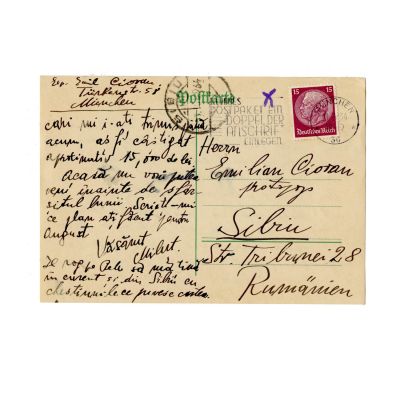 Exp. Emil Cioran
Türkenstr. 58
München
Postkarte
POSTPAKET EIN
DOPPEL DER
ANSCHRIFT
EINLEGEN
15 15
Deutsches Reich
MÜNCHEN
SIBIU
cari mi i-ați trimis, până
acum, aș fi câștigat
aproximativ 15,000 de lei.
Acasă nu voi putea
veni înainte de sfâr-
șitul lunii. Scrieți-mi
ce plan ați făcut pentru
august.
Vă sărut,
Te rog pe Relu să mă țină
în curent și din Sibiu cu
chestiunile ce privesc
Herrn
Emilian Cioran
protopop
Sibiu
Str. Tribunei 28
Rumänien